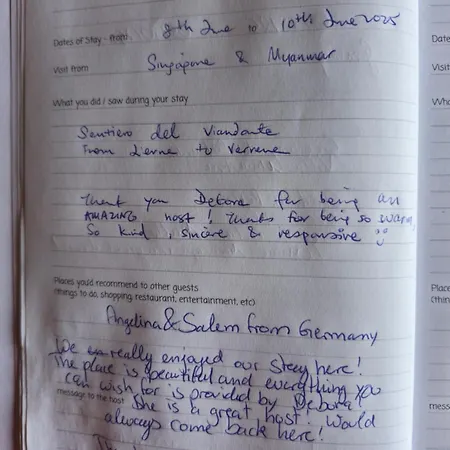 Dates of Stay - from 8th June to 10th June 2025
Visit from Singapore & Myanmar
What you did / saw during your stay
Sentiero del Viandante
From Lierna to Varenna
Thank you Debora for being an
AMAZING host! Thanks for being so warm,
So kind, sincere & responsive
Places you'd recommend to other guests
(things to do, shopping, restaurant, entertainment, etc)
Angelina & Salem from Germany
We really enjoyed our stay here!
The place is beautiful and everything you
can wish for is provided by Debora!
message to the host She is a great host. Would
always come back here!
Date
Visit
Wha
Place
(thin
mess